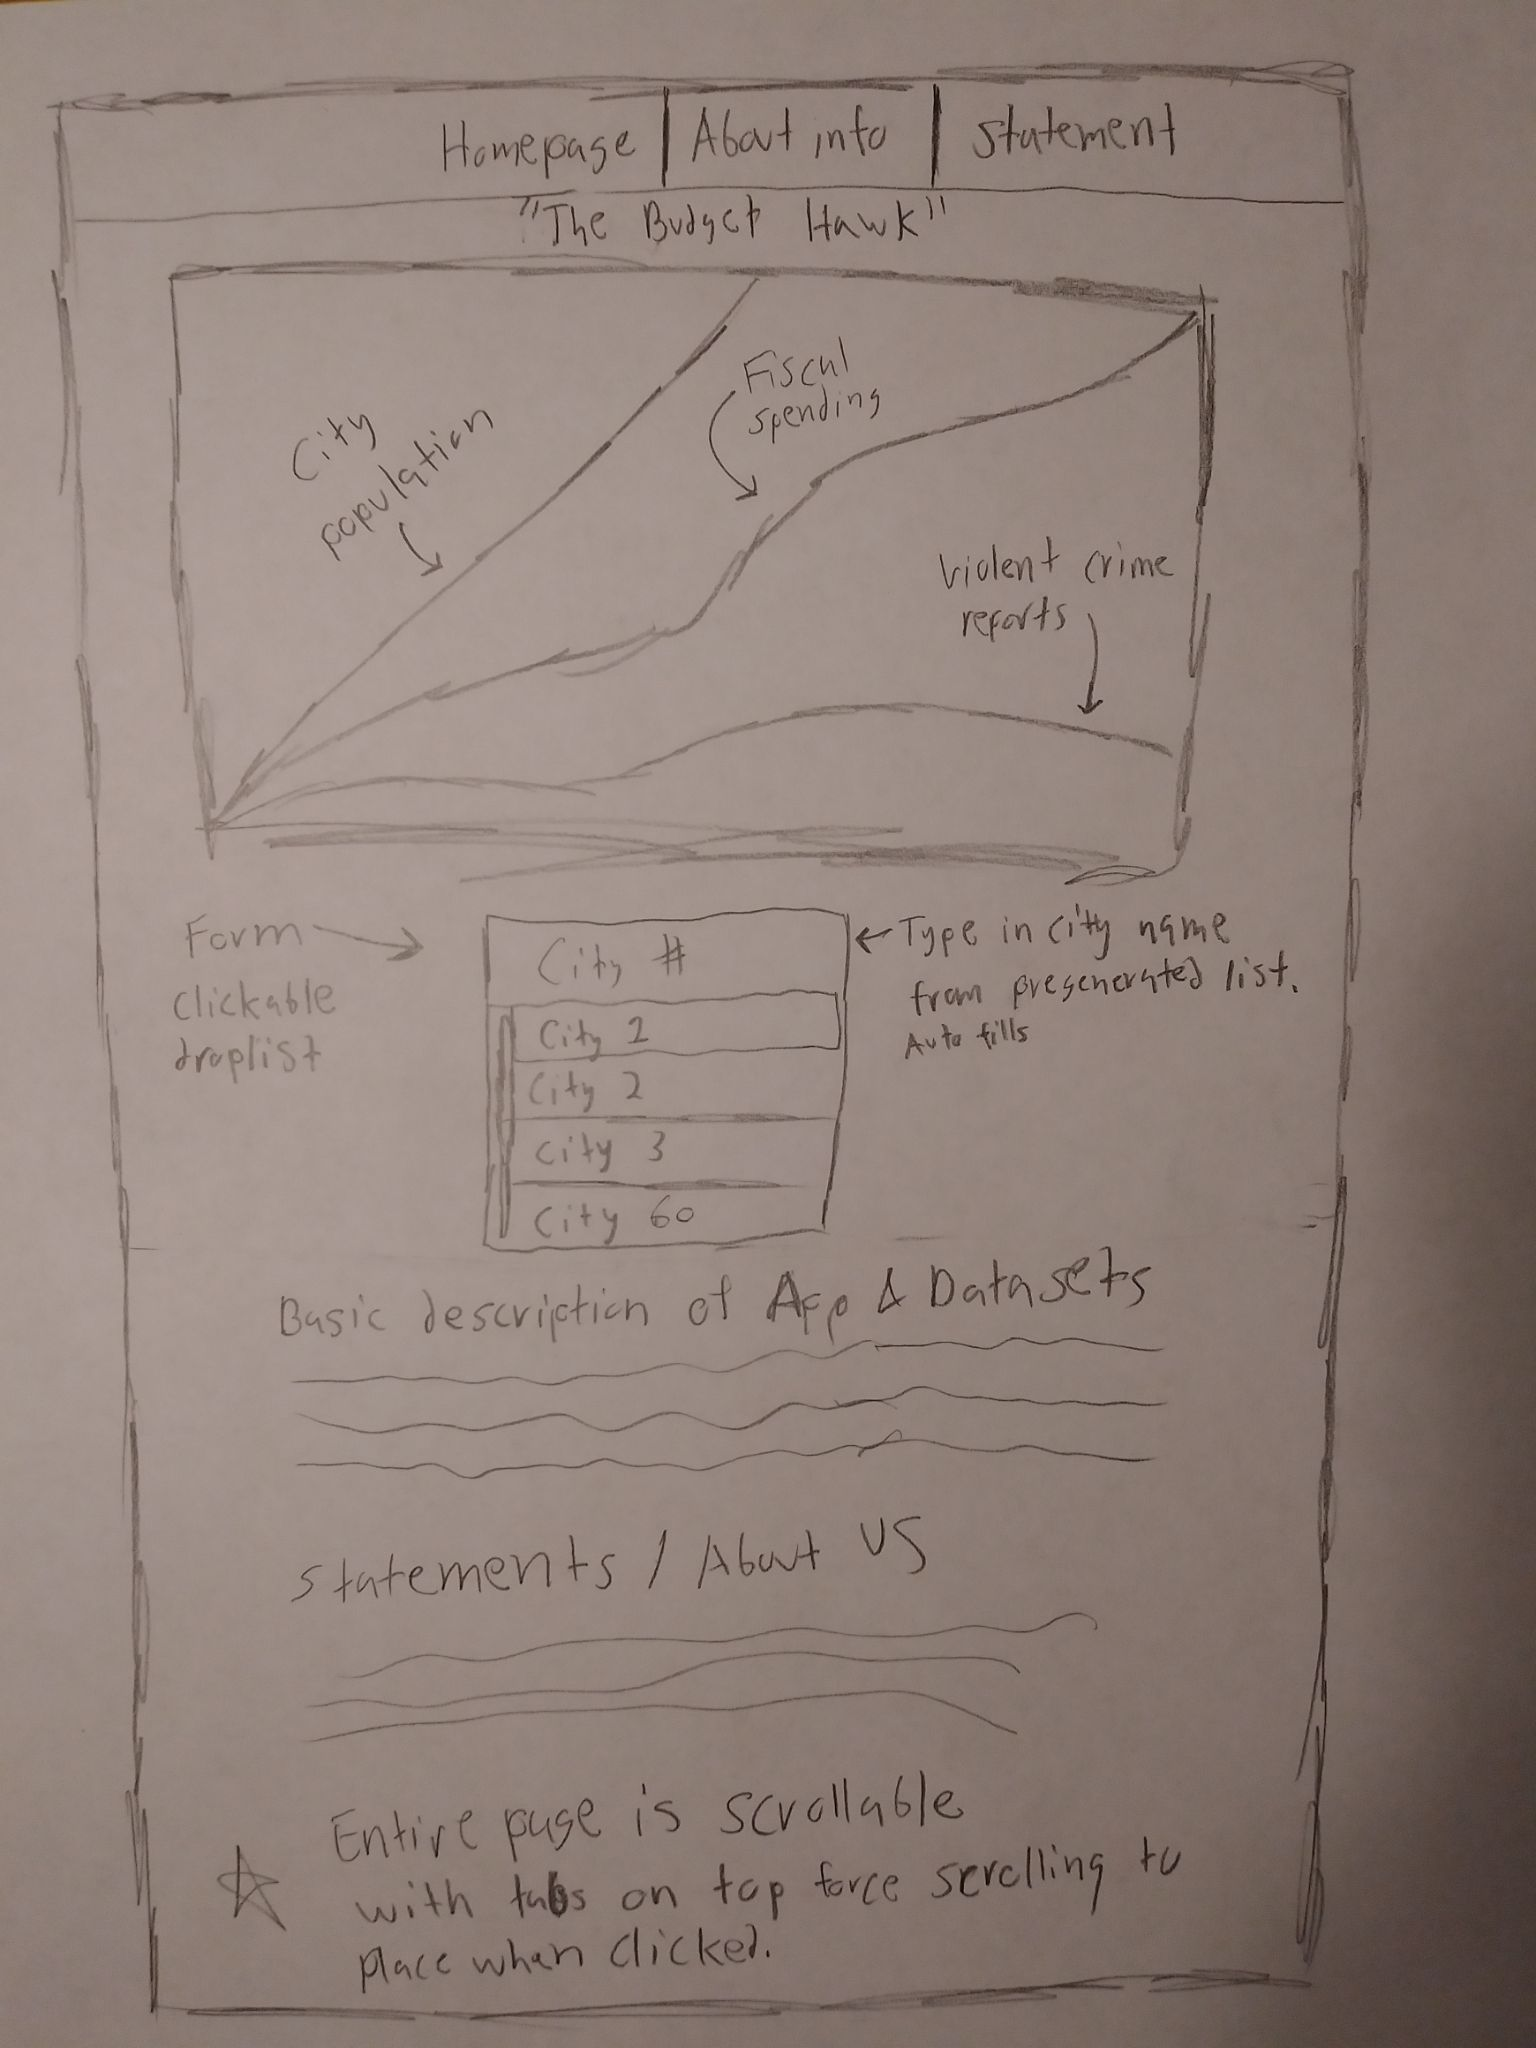 Homepage | About info | Statement
"The Budget Hawk"
City
population
Fiscal
spending
Violent crime
reports
Form
clickable
droplist
City #
City 2
City 2
City 3
City 60
Type in city name
from pregenerated list.
Auto fills
Basic description of App & Datasets
Statements / About US
Entire page is scrollable
with tabs on top force scrolling to
place when clicked.